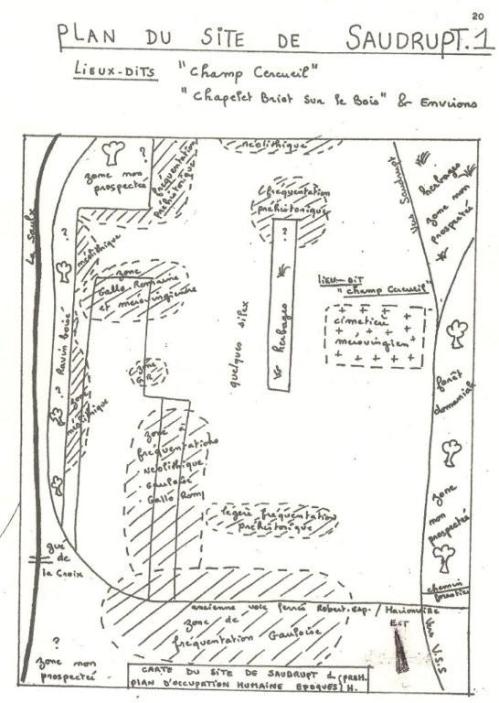 20
PLAN DU SITE DE SAUDRUPT.1
LIEUX-DITS "Champ Cercueil"
"Chapelet Briot sur le Bois" & Environs
néolithique
zone non
prospectée
?
fréquentation
préhistorique
fréquentation
préhistorique
?
vers Saudrupt
herbages
zone non
prospectée
La Saulx
?
néolithique
zone
Gallo Romaine
et mérovingienne
quelques silex
herbages
LIEU-DIT
"champ Cercueil"
cimetière
mérovingien
Ravin boisé
?
zone
néolithique
zone
G.R.
forêt
domaniale
zone
fréquentations
Néolithique
gauloise
Gallo Rom
légère fréquentation
préhistorique
zone
non
prospectée
gué
de
la Croix
chemin
forestier
ancienne voie ferrée Robert-Esp. / Haironville
zone de
fréquentation Gauloise
EST
vers V.S.S
?
zone non
prospectée
CARTE DU SITE DE SAUDRUPT 1 (PREH.
PLAN D'OCCUPATION HUMAINE EPOQUES) H.